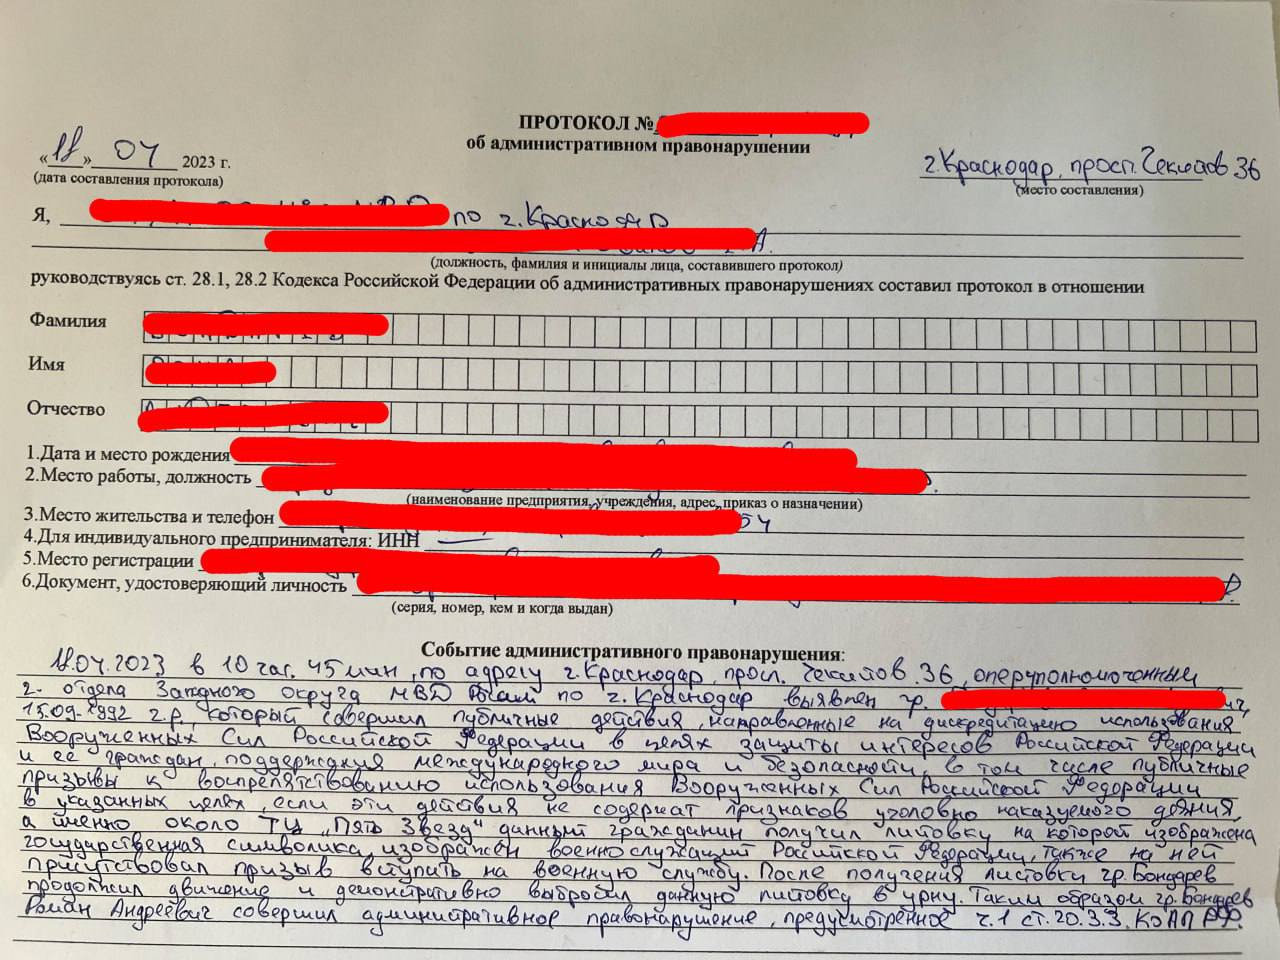 ПРОТОКОЛ №
об административном правонарушении
« » 04 2023 г.
(дата составления протокола)
г. Краснодар, просп. Чекистов 36
(место составления)
Я, по г. Краснодар
А.
(должность, фамилия и инициалы лица, составившего протокол)
руководствуясь ст. 28.1, 28.2 Кодекса Российской Федерации об административных правонарушениях составил протокол в отношении
Фамилия
Имя
Отчество
1.Дата и место рождения
2.Место работы, должность
(наименование предприятия, учреждения, адрес, приказ о назначении)
3.Место жительства и телефон 54
4.Для индивидуального предпринимателя: ИНН —
5.Место регистрации
6.Документ, удостоверяющий личность
(серия, номер, кем и когда выдан)
Событие административного правонарушения:
04.2023 в 10 час. 45 мин, по адресу г. Краснодар, просп. Чекистов 36, оперуполномоченным
2- отдела Западного округа МВД России по г. Краснодар выявлен гр. ич,
15.09.1992 г.р., который совершил публичные действия, направленные на дискредитацию использования
Вооруженных Сил Российской Федерации в целях защиты интересов Российской Федерации
и ее граждан, поддержания международного мира и безопасности, в том числе публичные
призывы к воспрепятствованию использования Вооруженных Сил Российской Федерации
в указанных целях, если эти действия не содержат признаков уголовно наказуемого деяния,
а именно около ТЦ „Пять Звезд" данный гражданин получил листовку на которой изображена
государственная символика, изображен военнослужащий Российской Федерации, также на ней
присутствовал призыв вступать на военную службу. После получения листовки гр. Бондарев
продолжил движение и демонстративно выбросил данную листовку в урну. Таким образом гр. Бондарев
Роман Андреевич совершил административное правонарушение, предусмотренное ч.1 ст.20.3.3. КоАП РФ.